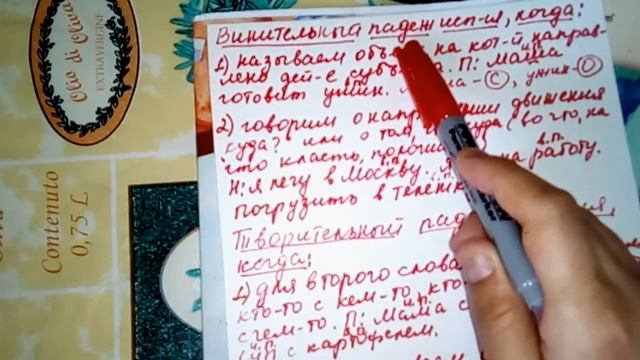 Olio di Oliva
EXTRAVERGINE
Contenuto
0,75 L
Винительный падеж исп-ия, когда:
1) называем объ на кот-й направ-
лено дей-е субъ а. П: мама
готовит ужин. ма - С, ужин - О
2) говорим о нап ии движения
куда? или о том, куда (во что, на
что класть, полож
Н: я лечу в Москву. на работу.
погрузить в тележк
Творительный пад
когда:
1) для второго слова
кто-то с кем-то, кто
с чем-то. П: Мама с
с картофелем.
и.п.
в.п.
и.п.
в.п.
и.п.
и.п.